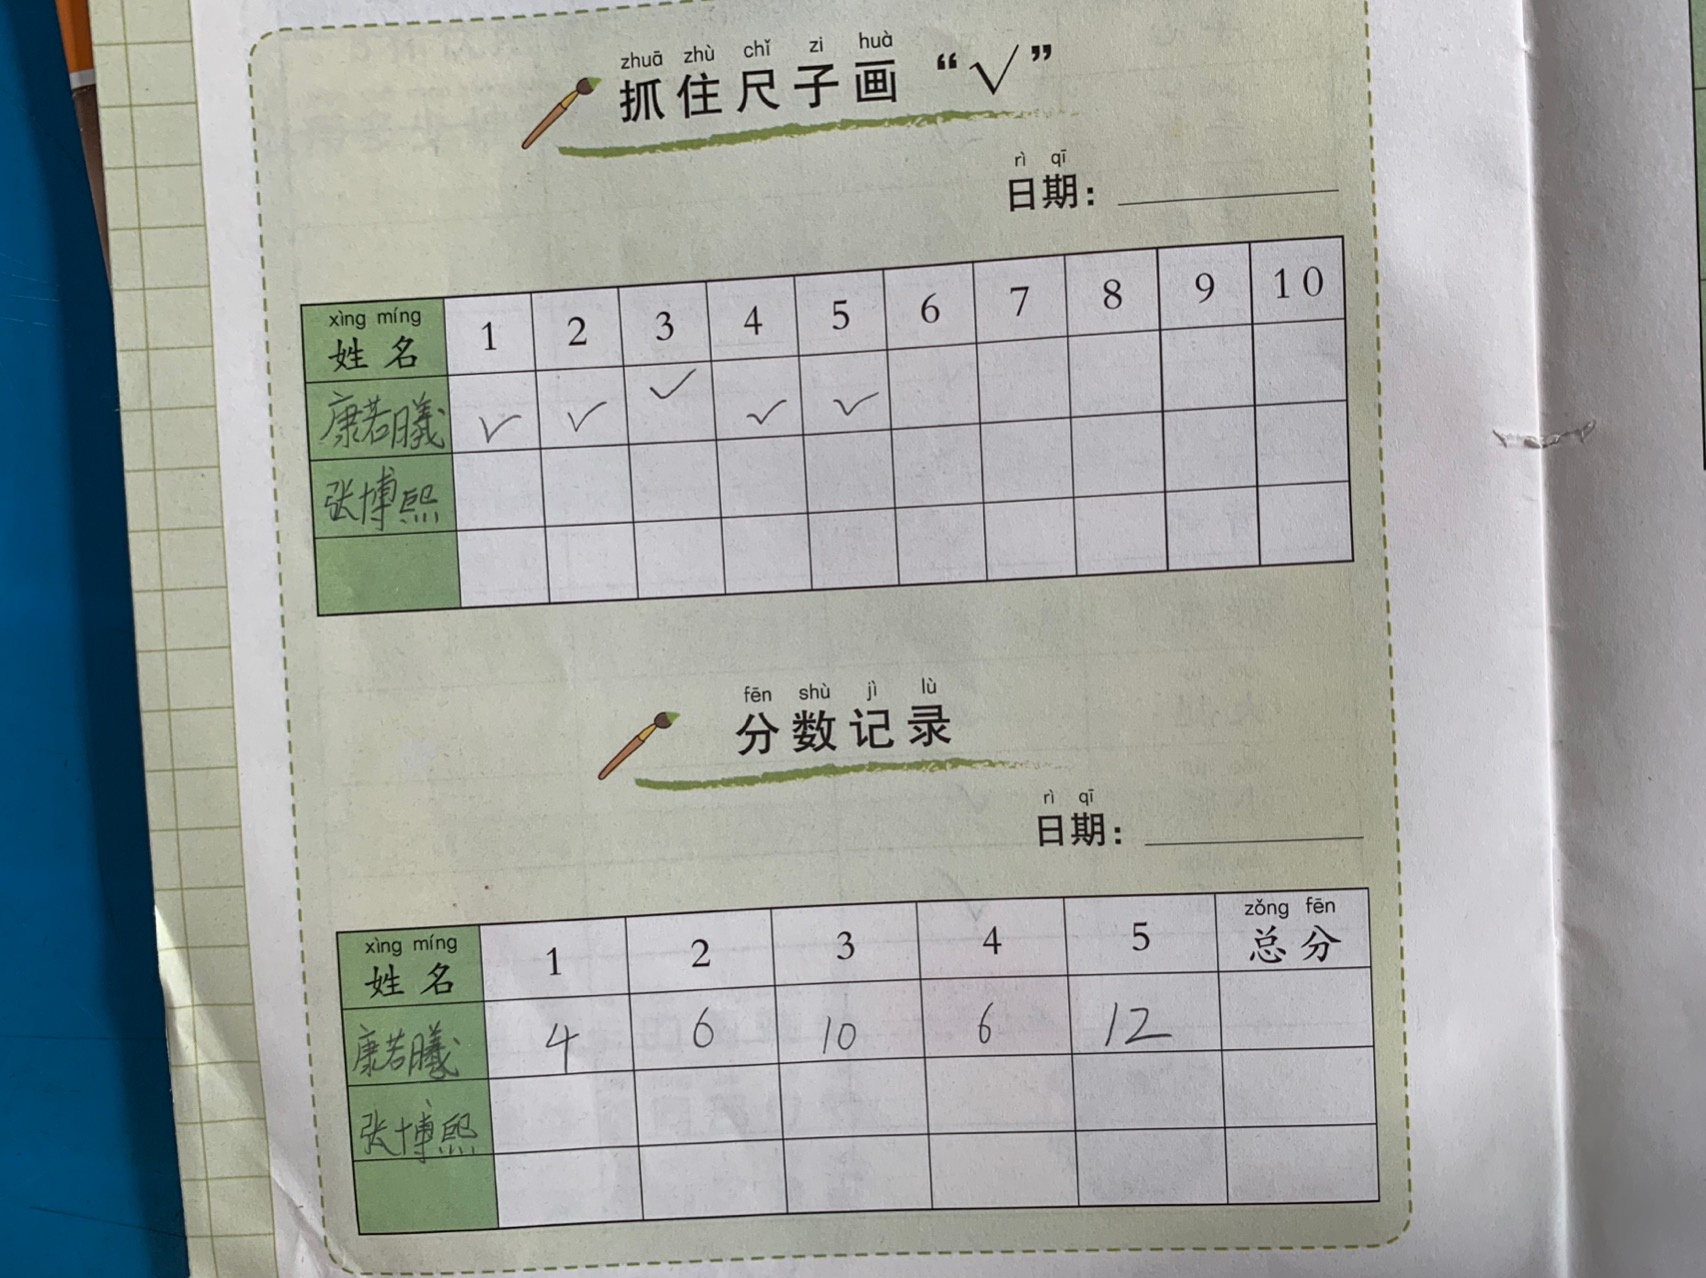 zhuā zhù chǐ zi huà
抓住尺子画“√”
rì qī
日期：
xìng míng
姓名 1 2 3 4 5 6 7 8 9 10
康若曦 ✓ ✓ ✓ ✓ ✓
张博熙
fēn shù jì lù
分数记录
rì qī
日期：
xìng míng zǒng fēn
姓名 1 2 3 4 5 总分
康若曦 4 6 10 6 12
张博熙